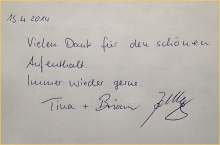 15.4.2014
Vielen Dank für den schönen
Aufenthalt.
Immer wieder gerne.
Tina + Brian